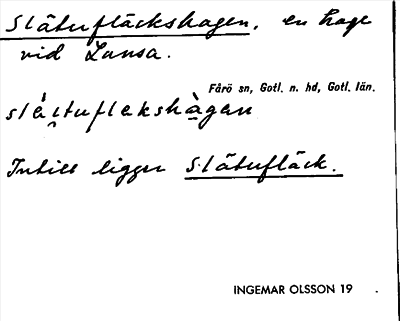 Slätufläckshagen, en hage
vid Lansa.
Fårö sn, Gotl. n. hd, Gotl. län.
slä̀tuflekshàgen
Intill ligger Slätufläck.
INGEMAR OLSSON 19